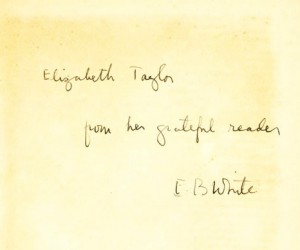 Elizabeth Taylor
from her grateful reader
E. B. White